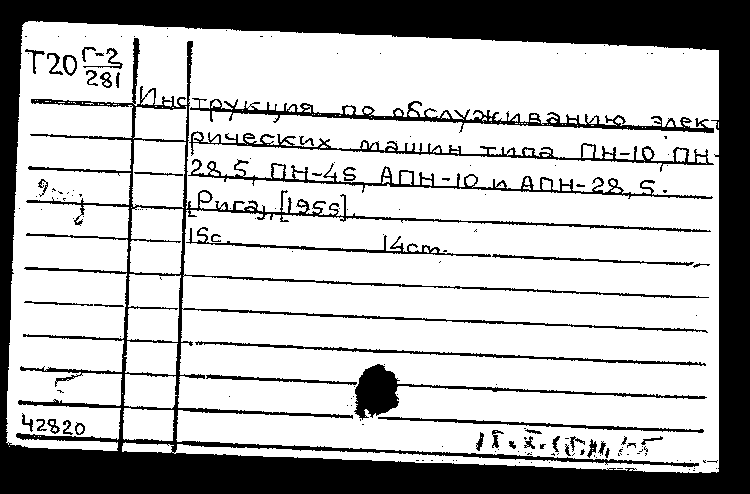 Т20 Г-2/281
Инструкция по обслуживанию элект
рических машин типа ПН-10, ПН-
28,5, ПН-45, АПН-10 и АПН-28,5.
[Рига], [1955].
15с. 14cm.
42820